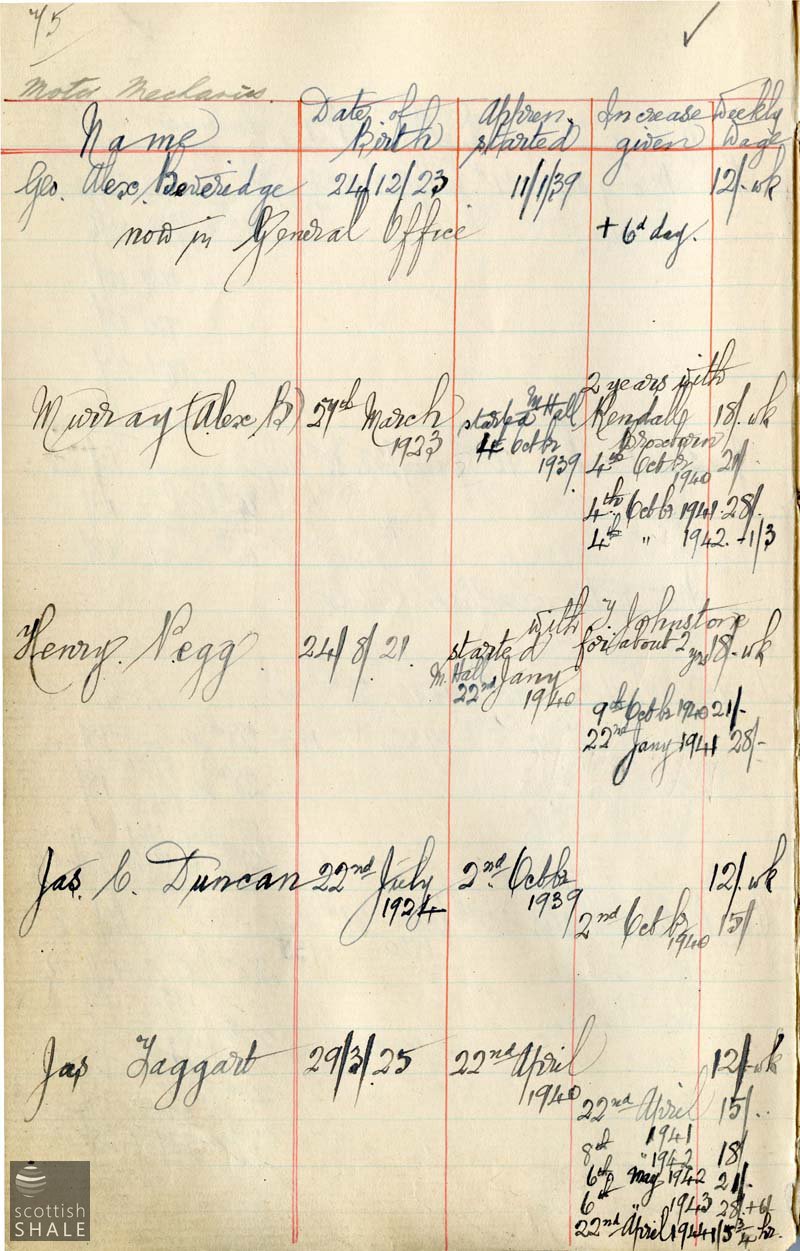 75
Motor Mechanics.
Name Date of Birth Appren. started Increase given Weekly Wage
Geo. Alex. Beveridge 24/12/23 11/1/39 12/- wk
now in General Office + 6d day.
2 years with
Murray (Alex B) 27th March started M Hall Kendall 18/- wk
1923 4th Octbr Broxburn
1939 4th Octbr 21/-
1940
4th Octbr 1941. 28/-
4th " 1942. +1/3
with T. Johnstone
Henry. Pegg. 24/8/21 started for about 2 yrs 18/- wk
M. Hall
22nd Jany
1940 9th Octbr 1940 21/-
22nd Jany 1941 28/-
Jas. C. Duncan 22nd July 2nd Octbr 12/- wk
1924 1939
2nd Octbr 15/-
1940
Jas Taggart 29/3/25 22nd April 12/- wk
1940
22nd April 15/-
1941
8th " 1942 18/
6th May 1942 21/-
6th " 1943 28/-
22nd April 1944 1/5 3/4 hr.
scottish
SHALE